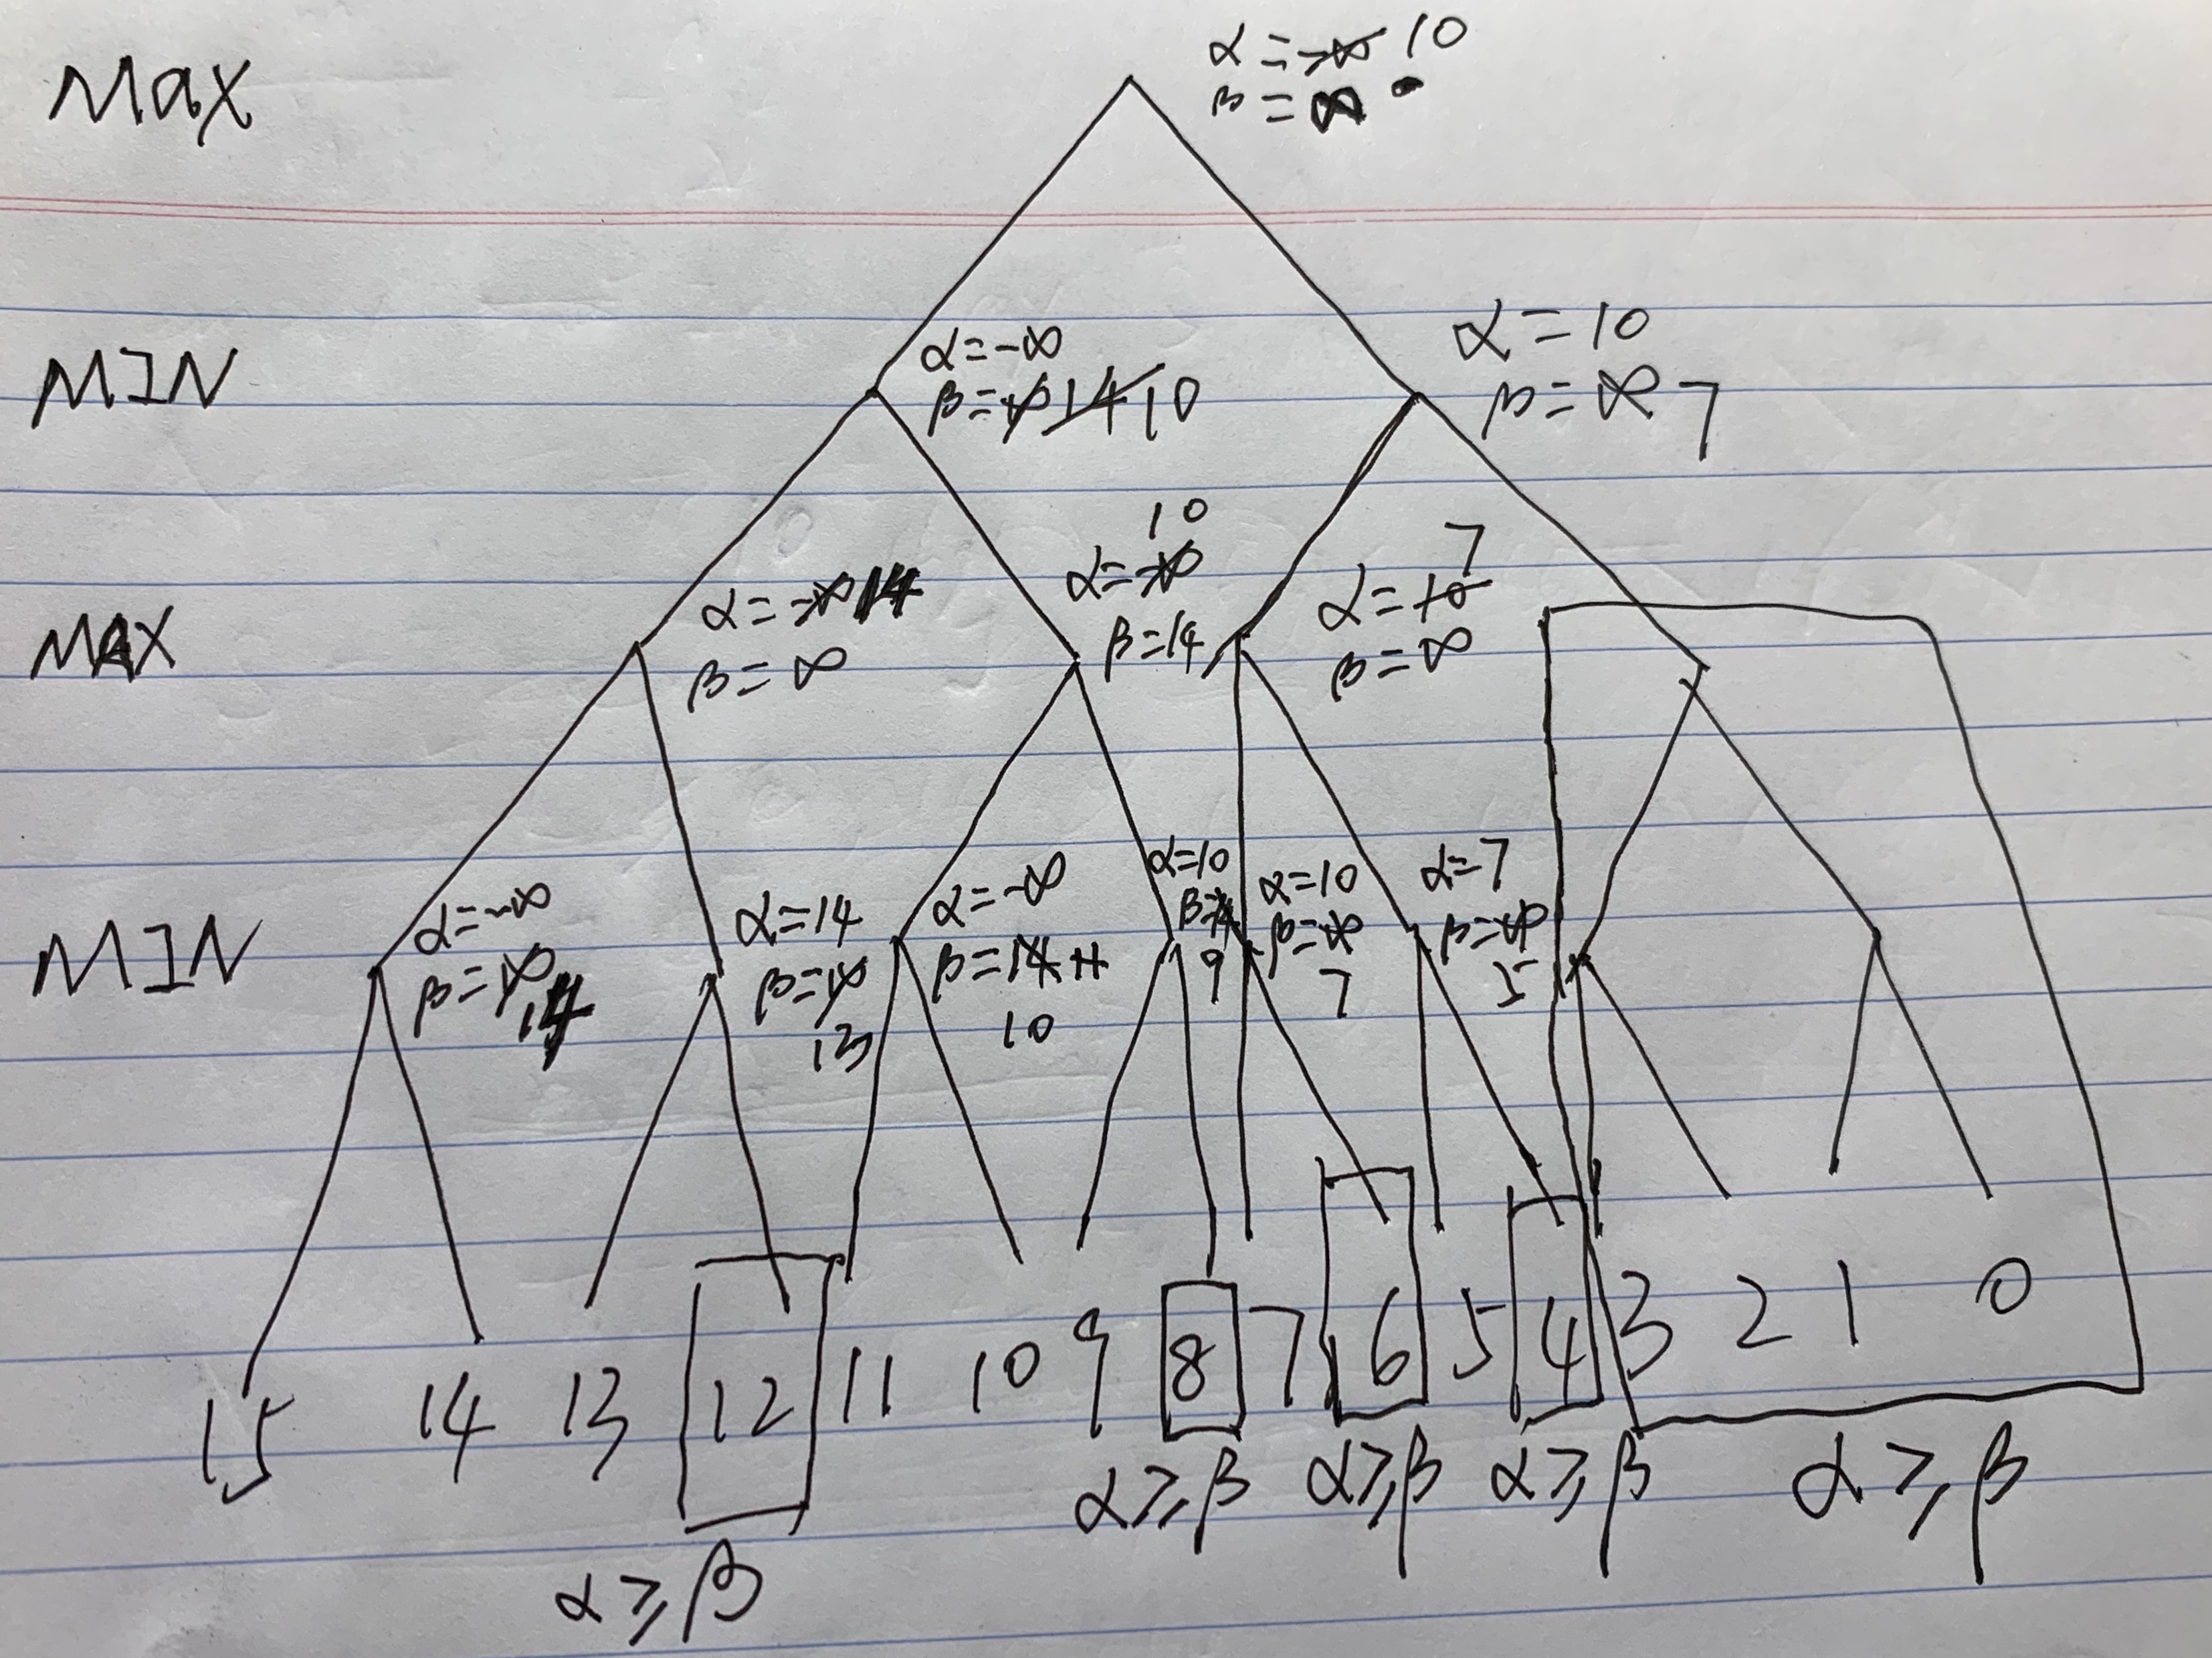 Max
α = -∞ 10
β = ∞
MIN
α = -∞
β = ∞ 14 10
α = 10
β = ∞ 7
MAX
α = -∞ 14
β = ∞
10
α = -∞
β = 14
7
α = 10
β = ∞
MIN
α = -∞
β = ∞ 14
α = 14
β = ∞
13
α = -∞
β = 14 11
10
α = 10
β = 14
9
α = 10
β = ∞
7
α = 7
β = ∞
5
15 14 13 12 11 10 9 8 7 6 5 4 3 2 1 0
α ≥ β α ≥ β α ≥ β α ≥ β
α ≥ β